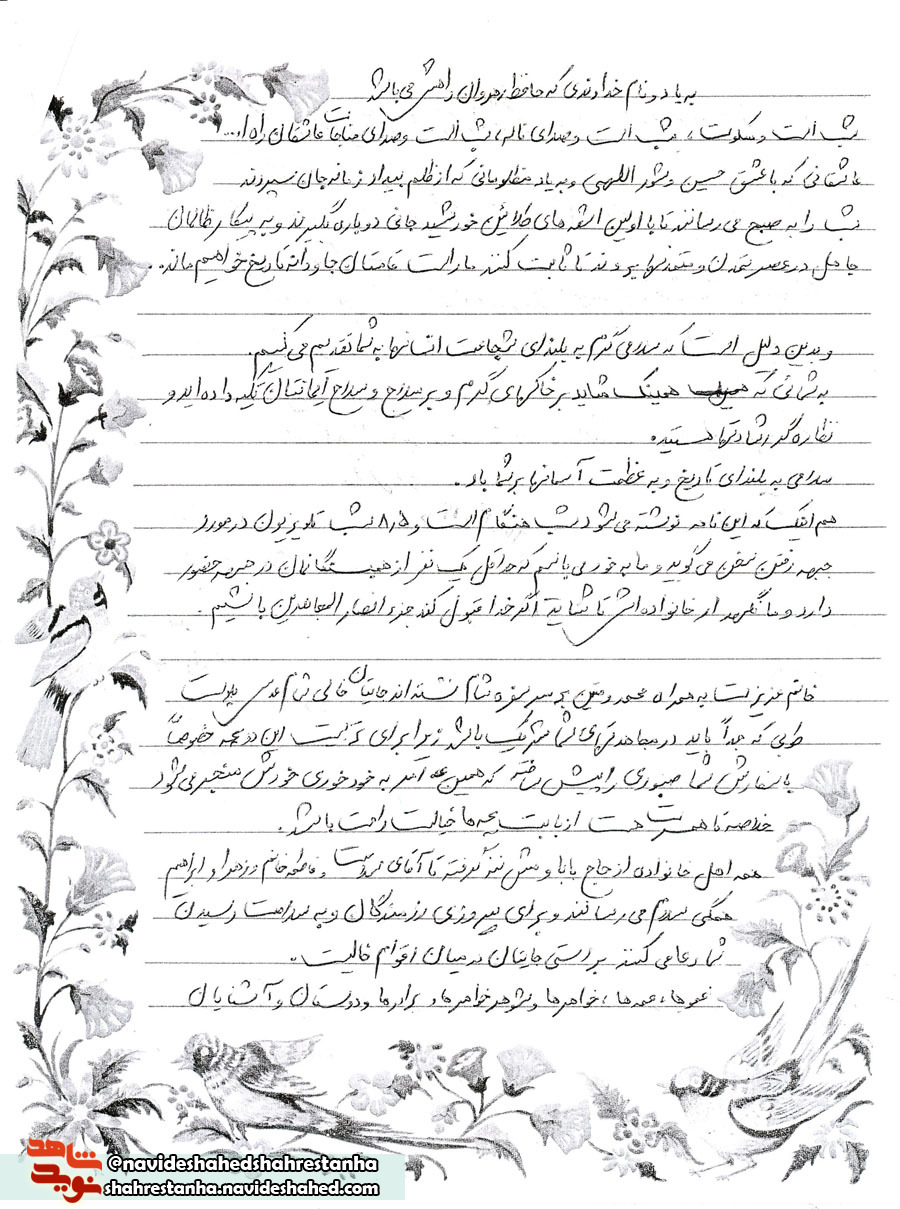 به یاد و نام خداوندی که حافظ رهروان راهش می باشد
شب است و سکوت، شب است و صدای ناله، شب است و صدای مناجات عاشقان راه ا...
عاشقانی که با عشق حسین و شور اللهی و به یاد مظلومانی که از ظلم بیداد زمانه جان سپردند
شب را به صبح می رسانند تا با اولین اشعه های طلائین خورشید جانی دوباره بگیرند و به پیکار ظالمان
جاهل در عصر تمدن و متمدنها بروند تا ثابت کنند ما راست قامتان جاودانه تاریخ خواهیم ماند.
و بدین دلیل است که سلامی گرم به بلندای شجاعت انسانها به شما تقدیم می کنیم.
به شمائی که همینک شاید بر خاکهای گرم و بر سلاح و سلاح ایمانتان تکیه داده اید و
نظاره گر رشادتها هستید.
سلامی به بلندای تاریخ و به عظمت آسمانها بر شما باد.
هم اینک که این نامه نوشته می شود شب هنگام است و ۸/۵ شب تلویزیون در مورد
جبهه رفتن سخن می گوید و ما به خود می بالیم که حداقل یک نفر از همبستگانمان در جبهه حضور
دارد و ما نگهدار خانواده اش تا شاید اگر خدا قبول کند جزء انصار المجاهدین باشیم.
خانم عزیزت به همراه محمد و متین بر سر سفره شام نشسته اند جایتان خالی شام عدس پلوست
طوبی که جداً باید در مجاهدتهای شما شریک باشد زیرا برای تربیت این دو بچه خصوصاً
با سفارش شما صبوری را پیش ساخته که همین عمل آمد به خودخوری خودش منجر می شود
خلاصه تا همسرت هست از بابت بچه ها خیالت راحت باشد.
همه اهل خانواده از حاج بابا و ننه گرفته تا آقای و فاطمه خانم و زهرا و ابراهیم
همگی سلام می رسانند و برای پیروزی رزمندگان و به سلامت رسیدن
شما دعا می کنند براستی جایتان در میان اقوام خالیست.
عموها، عمه ها، خواهرها و شوهر خواهرها و برادرها و دوستان و آشنایان
شاهد
نوید
@navideshahedshahrestanha
shahrestanha.navideshahed.com